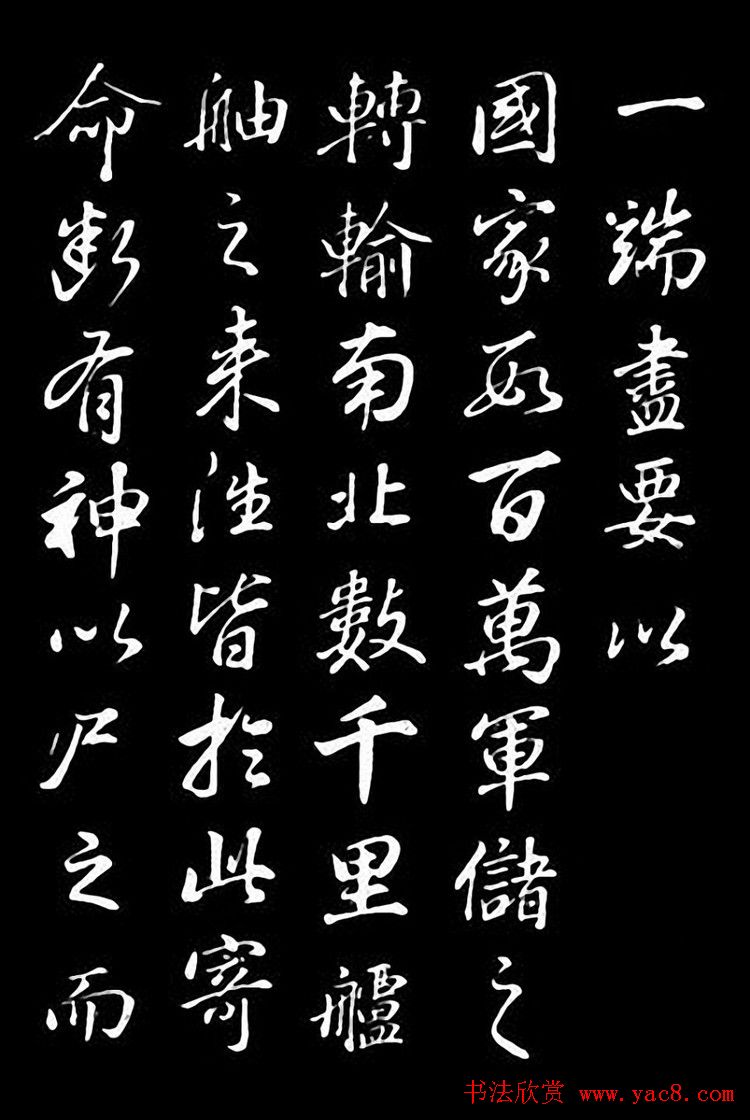 一端盡要以
國家數百萬軍儲之
轉輸南北數千里艫
舳之来往皆於此寄
命斷有神以尸之而
书法欣赏 www.yac8.com